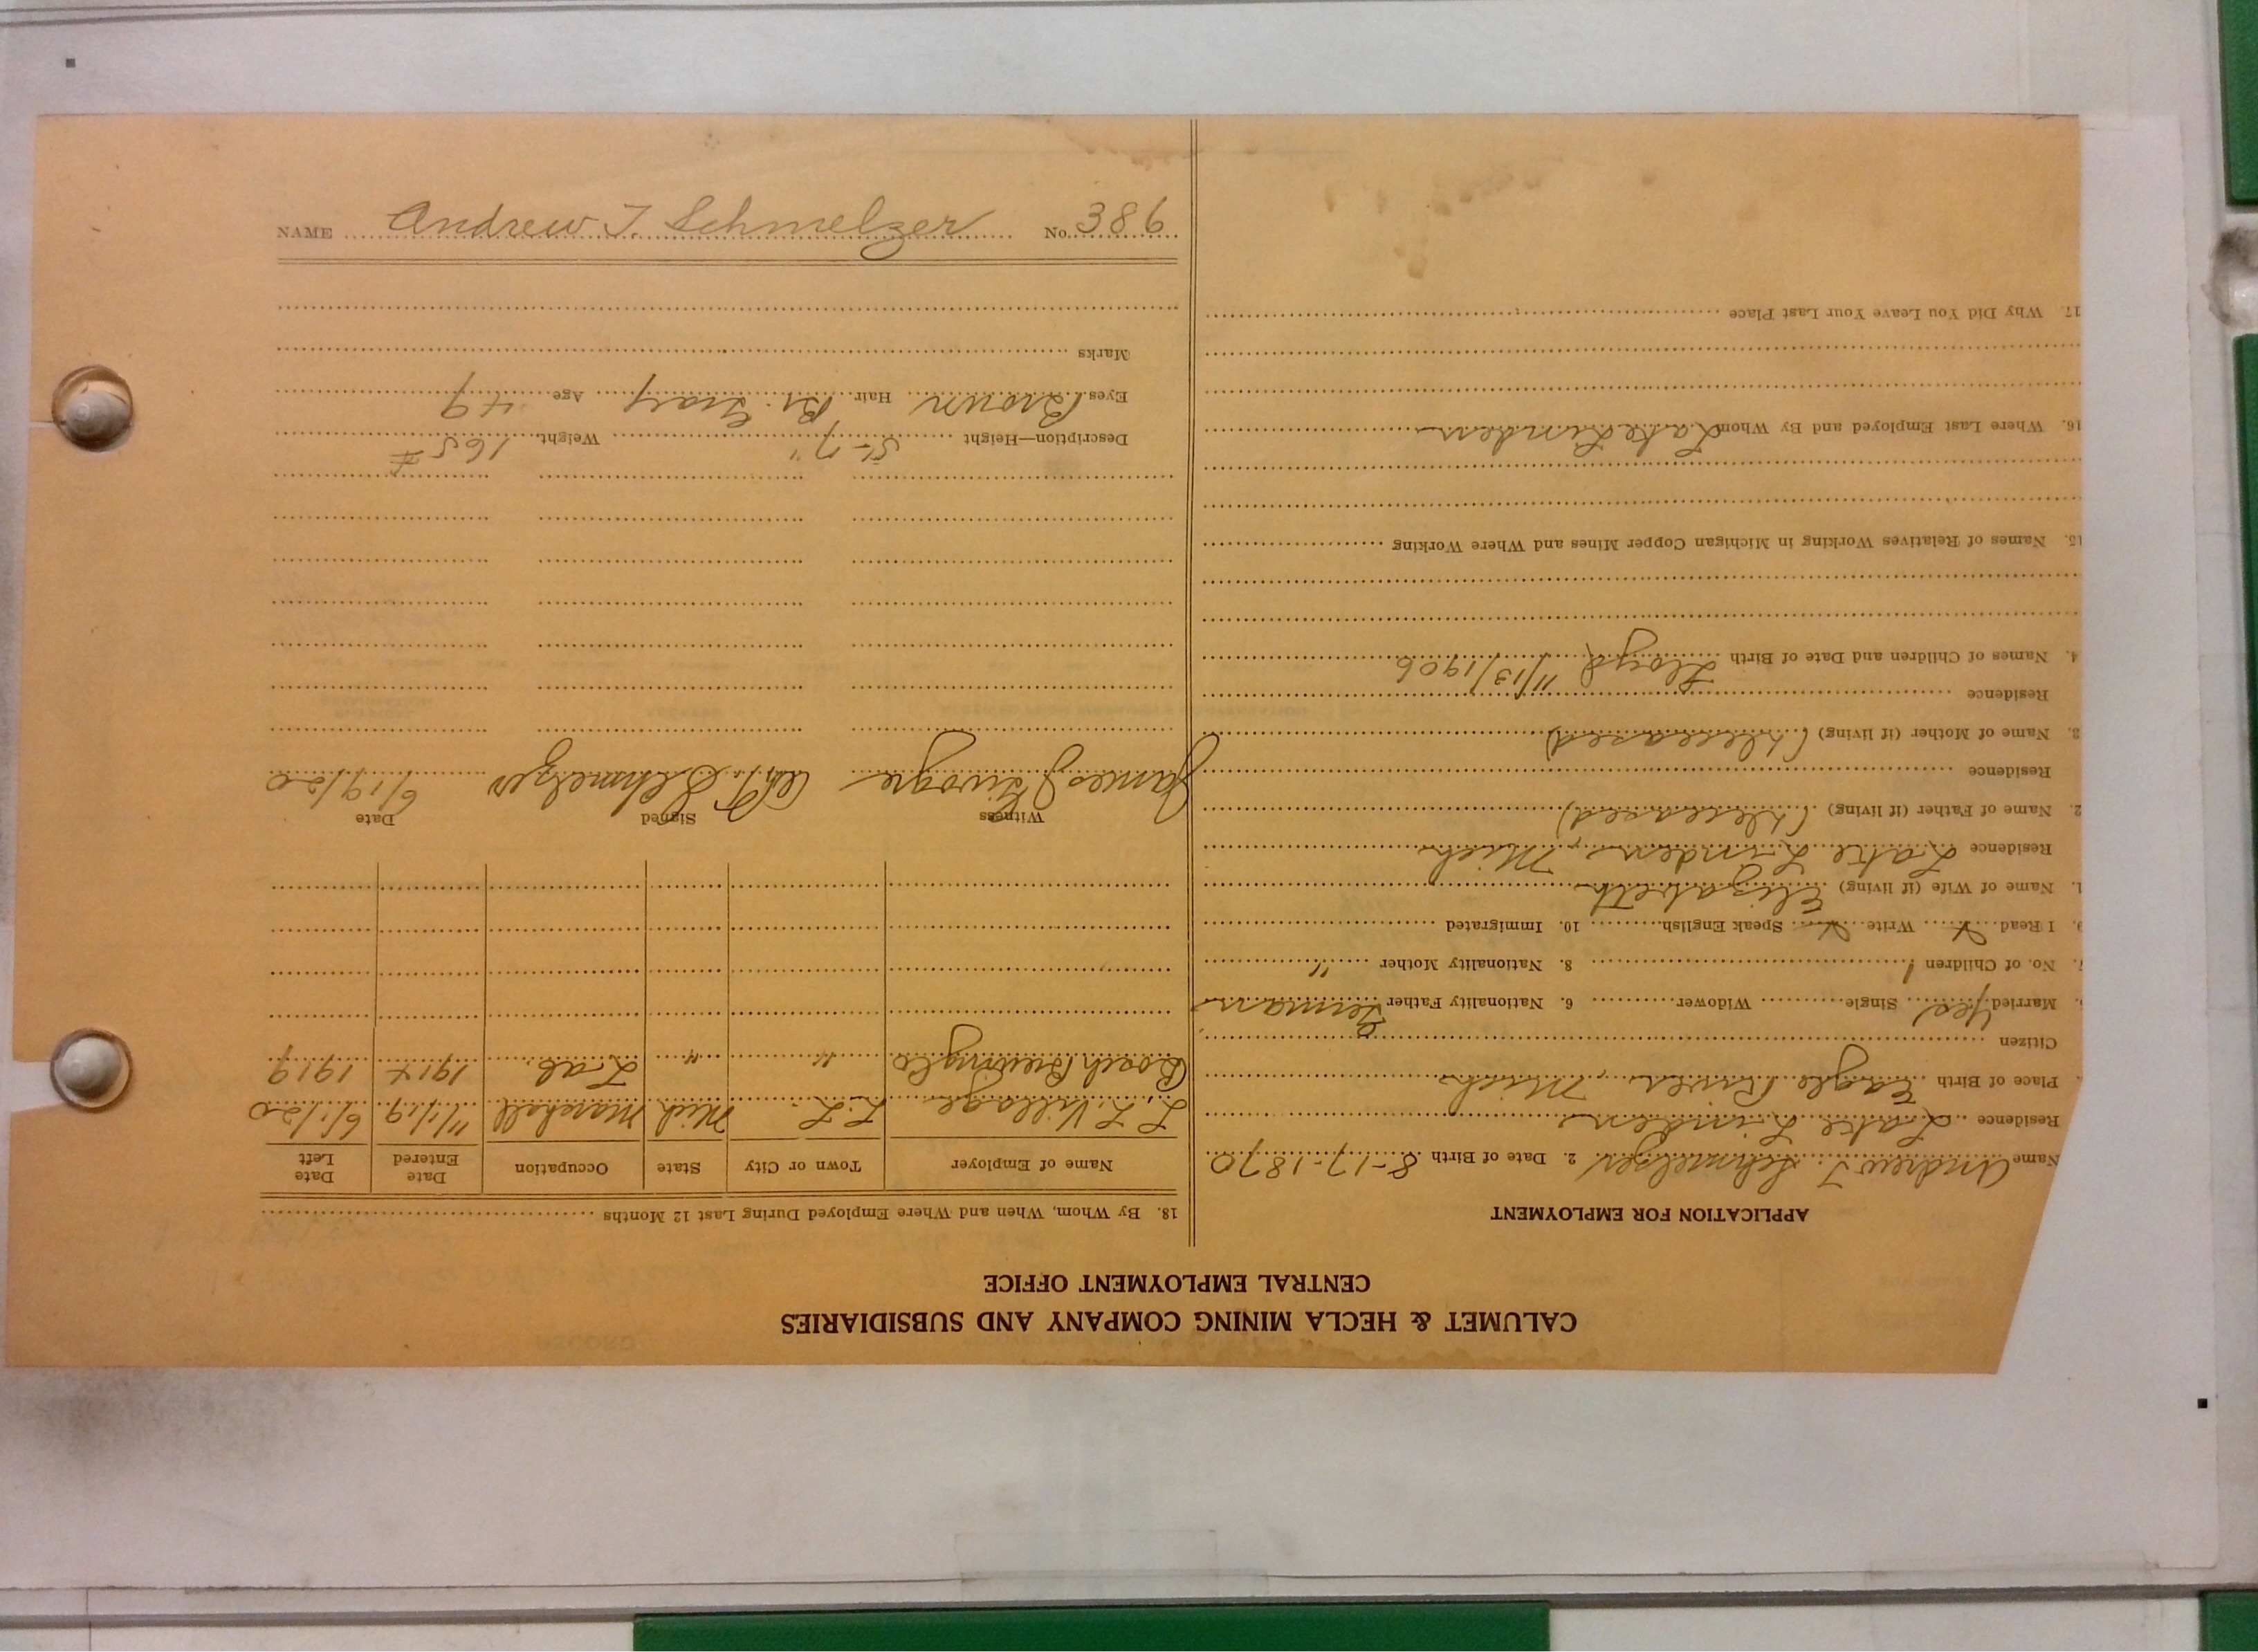 CALUMET & HECLA MINING COMPANY AND SUBSIDIARIES
CENTRAL EMPLOYMENT OFFICE
APPLICATION FOR EMPLOYMENT
Name Andrew J. Schmelzer 2. Date of Birth 8-17-1870
Residence Lake Linden
Place of Birth Eagle River, Mich
Citizen
Married Yes Single Widower 6. Nationality Father German
7. No. of Children 1 8. Nationality Mother "
9. I Read x Write x Speak English 10. Immigrated
1. Name of Wife (if living) Elizabeth
Residence Lake Linden, Mich
2. Name of Father (if living) (deceased)
Residence
3. Name of Mother (if living) (deceased)
Residence
4. Names of Children and Date of Birth Lloyd 11/13/1906
15. Names of Relatives Working in Michigan Copper Mines and Where Working
16. Where Last Employed and By Whom Lake Linden
17. Why Did You Leave Your Last Place
18. By Whom, When and Where Employed During Last 12 Months
Name of Employer Town or City State Occupation Date Entered Date Left
L. L. Village L. L. Mich Marshall 11/1/19 6/1/20
Bosch Brewing Co " " Lab. 1914 1919
Witness Signed Date
James A. T. Schmelzer 6/19/20
Description—Height 5'-7" Weight 165 #
Eyes Brown Hair Br. Gray Age 49
Marks
NAME Andrew J. Schmelzer No. 386